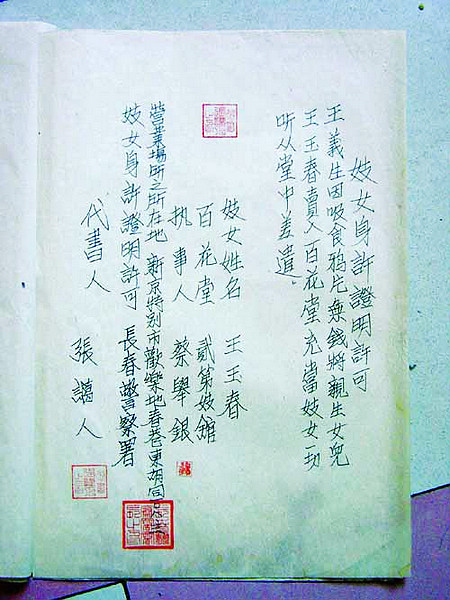 妓女身許證明許可
王義生因吸食鸦片無錢將親生女兒
王玉春賣入百花堂充當妓女切
听从堂中差遣。
妓女姓名 王玉春
百花堂 貳第妓館
执事人 蔡舉銀
營業場所之所在地 新京特别市歡樂地春巷東胡同
妓女身許證明許可 長春警察署
代書人 張謁人